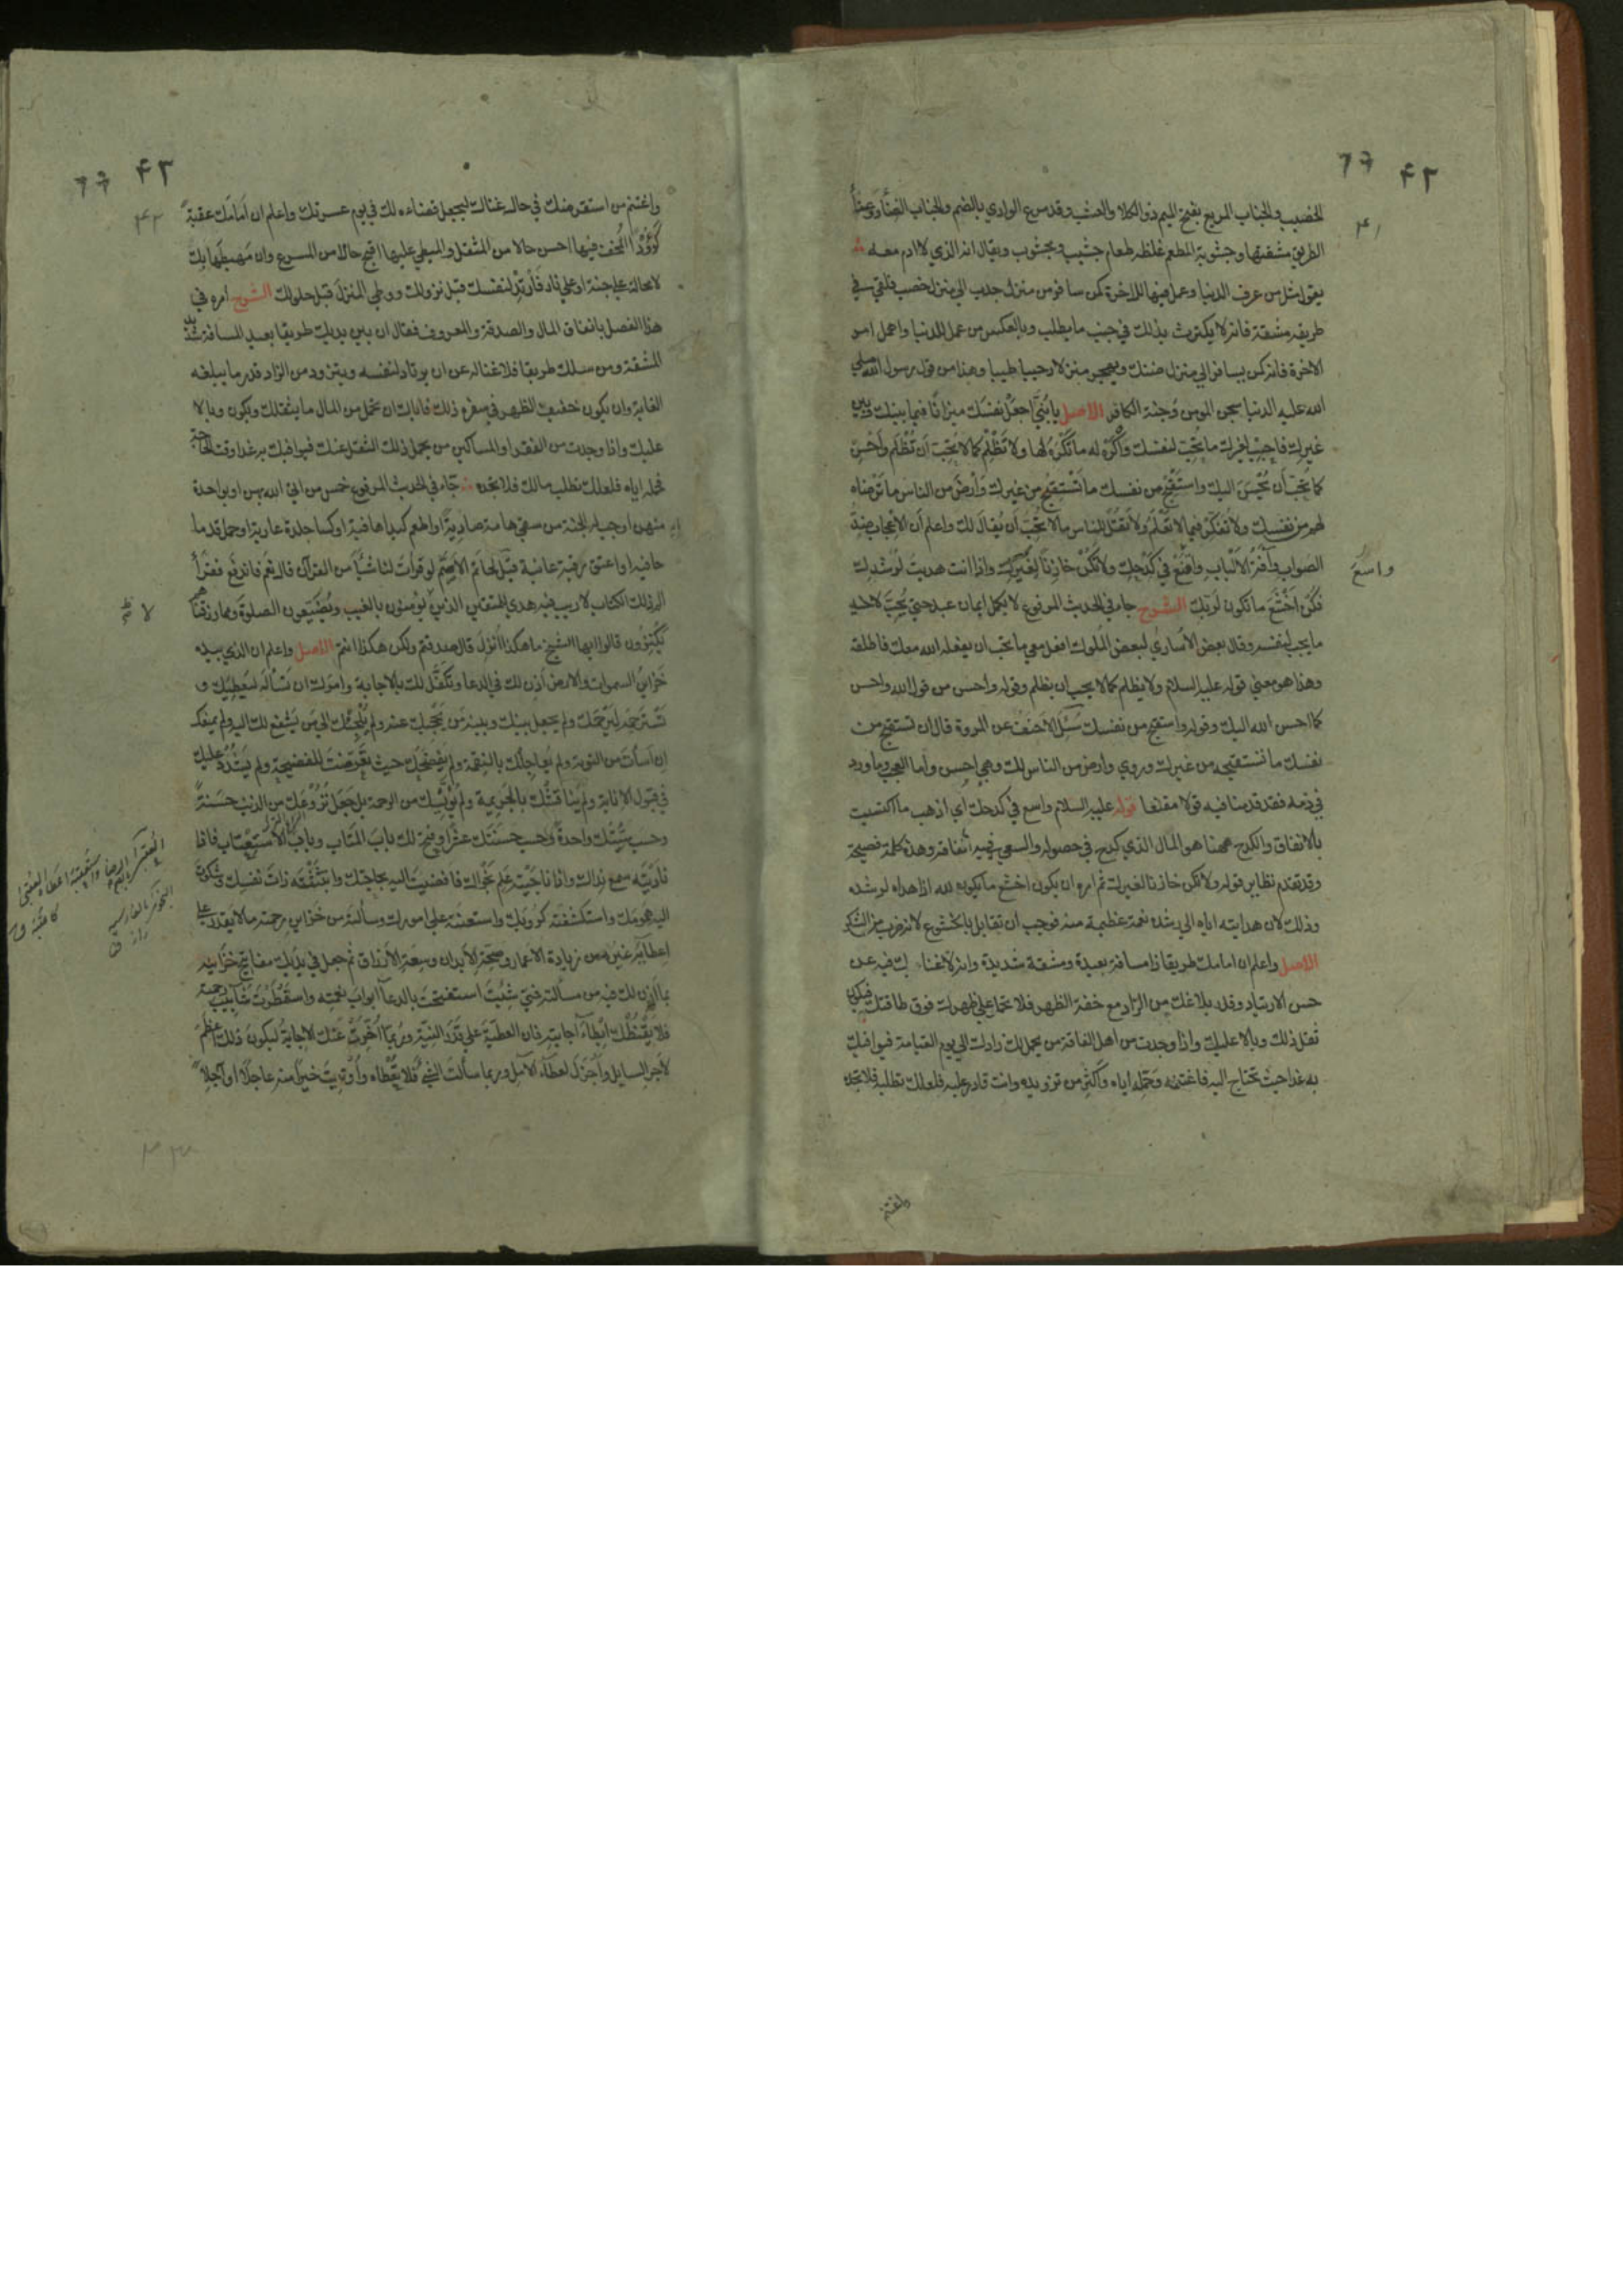 ٤٢
٤١
الخصيب والجناب المريع بفتح الميم ذو الكلاء والعشب وقد مرع الوادي بالضم والجناب الفناء ووعثاء
الطريق مشقتها وجشوبة المطعم غلظه طعام جشيب ومجشوب ويقال انه الذي لا ادم معه
يقول مثل من عرف الدنيا وعمل فيها للاخرة كمن سافر من منزل جدب الي منزل خصب فلقي في
طريقه مشقة فانه لا يكترث بذلك في جنب ما يطلب وبالعكس من عمل للدنيا واهمل امر
الاخرة فانه كمن يسافر الي منزل ضنك ويهجر منزلا رحيبا طيبا وهذا من قول رسول الله صلي
الله عليه الدنيا سجن المومن وجنة الكافر الاصل يا بني اجعل نفسك ميزانا فيما بينك وبين
غيرك فاحبب لغيرك ما تحب لنفسك واكره له ما تكره لها ولا تظلم كما لا تحب ان تظلم واحسن
كما تحب ان يحسن اليك واستقبح من نفسك ما تستقبح من غيرك وارض من الناس ما ترضاه
لهم من نفسك ولا تقل للناس ما لا تحب ان يقال لك واعلم ان الاعجاب ضد
الصواب وآفة الالباب واسع في كدحك ولا تكن خازنا لغيرك واذا انت هديت لرشدك
واسع
فكن اخشع ما تكون لربك الشرح جاء في الحديث المرفوع لا يكمل ايمان عبد حتي يحب لاخيه
ما يحب لنفسه وقال بعض الاساري لبعض الملوك افعل معي ما تحب ان يفعله الله معك فاطلقه
وهذا هو معني قوله عليه السلام ولا تظلم كما لا تحب ان تظلم وقوله واحسن من قول الله واحسن
كما احسن الله اليك وقوله واستقبح من نفسك سئل الاحنف عن المروة قال ان تستقبح من
نفسك ما تستقبحه من غيرك وروي وارض من الناس لك وهي احسن واما العجب وما ورد
في ذمه فقد قدمنا فيه قولا مقنعا قوله عليه السلام واسع في كدحك اي اذهب ما اكتسبت
بالانفاق والكدح ههنا هو المال الذي كدح في حصوله والسعي فيه انفاقه وهذه كلمة فصيحة
وقد تقدم نظاير قوله ولا تكن خازنا لغيرك ثم امره ان يكون اخشع ما يكون لله اذا هداه لرشده
وذلك لان هدايته اياه الي رشده نعمة عظيمة منه فوجب ان تقابل بالخشوع لانه ضرب من الشكر
الاصل واعلم ان امامك طريقا ذا مسافة بعيدة ومشقة شديدة وانه لا غنا بك فيه عن
حسن الارتياد وقدر بلاغك من الزاد مع خفة الظهر فلا تحملن علي ظهرك فوق طاقتك فيكون
ثقل ذلك وبالا عليك واذا وجدت من اهل الفاقة من يحمل لك زادك الي يوم القيامة فيوافيك
به غدا حيث تحتاج اليه فاغتنمه وحمله اياه واكثر من تزويده وانت قادر عليه فلعلك تطلبه فلا تجده
واغتنم
٤٢
٤٢
واغتنم من استقرضك في حال غناك ليجعل قضاءه لك في يوم عسرتك واعلم ان امامك عقبة
كؤودا المخف فيها احسن حالا من المثقل والمبطي عليها اقبح حالا من المسرع وان مهبطها بك
لا محالة علي جنة او علي نار فارتد لنفسك قبل نزولك ووطي المنزل قبل حلولك الشرح امره في
هذا الفصل بانفاق المال والصدقة والمعروف فقال ان بين يديك طريقا بعيد المسافة شديد
المشقة ومن سلك طريقا فلا غنا له عن ان يرتاد لنفسه ويتزود من الزاد قدر ما يبلغه
الغاية وان يكون خفيف الظهر في سفره ذلك فاياك ان تحمل من المال ما يثقلك ويكون وبالا
عليك واذا وجدت من الفقرا والمساكين من يحمل ذلك الثقل عنك فيوافيك به غدا وقت الحاجة
فحمله اياه فلعلك تطلب مالك فلا تجده جاء في الحديث المرفوع خمس من اتي الله بهن او بواحدة
منهن اوجب له الجنة من سقي هامة صادية او اطعم كبدا هافية او كسا جلدة عارية او حمل قدما
حافية او اعتق رقبة عانية قيل لحاتم الاصم لو قرات لنا شيأ من القران قال نعم فاندفع فقرأ
الم ذلك الكتاب لا ريب فيه هدي للمتقين الذين يؤمنون بالغيب ويقيمون الصلوة ومما رزقناهم
يكنزون قالوا ايها الشيخ ما هكذا انزل قال صدقتم ولكن هكذا انتم الاصل واعلم ان الذي بيده
خزاين السموات والارض اذن لك في الدعا وتكفل لك بالاجابة وامرك ان تسأله ليعطيك و
تسترحمه ليرحمك ولم يجعل بينك وبينه من يحجبك عنه ولم يلجئك الي من يشفع لك اليه ولم يمنعك
ان اسأت من التوبة ولم يعاجلك بالنقمة ولم يفضحك حيث تعرضت للفضيحة ولم يشدد عليك
في قبول الانابة ولم يناقشك بالجريمة ولم يؤيسك من الرحمة بل جعل نزوعك من الذنب حسنة
وحسب سيئتك واحدة وحسب حسنتك عشرا وفتح لك باب المتاب وباب الاستعتاب فاذا
ناديته سمع نداك واذا ناجيته علم نجواك فافضيت اليه بحاجتك وابثثته ذات نفسك وشكوت
اليه همومك واستكشفته كروبك واستعنته علي امورك وسألته من خزاين رحمته ما لا يقدر علي
اعطائه غيره من زيادة الاعمار وصحة الابدان وسعة الارزاق ثم جعل في يديك مفاتيح خزاينه
بما اذن لك فيه من مسألته فمتي شئت استفتحت بالدعا ابواب نعمته واستمطرت شآبيب رحمته
فلا يقنطنك ابطاء اجابته فان العطية علي قدر النية وربما اخرت عنك الاجابة ليكون ذلك اعظم
لاجر السايل واجزل لعطاء الآمل وربما سألت الشي فلا تعطاه واوتيت خيرا منه عاجلا او آجلا